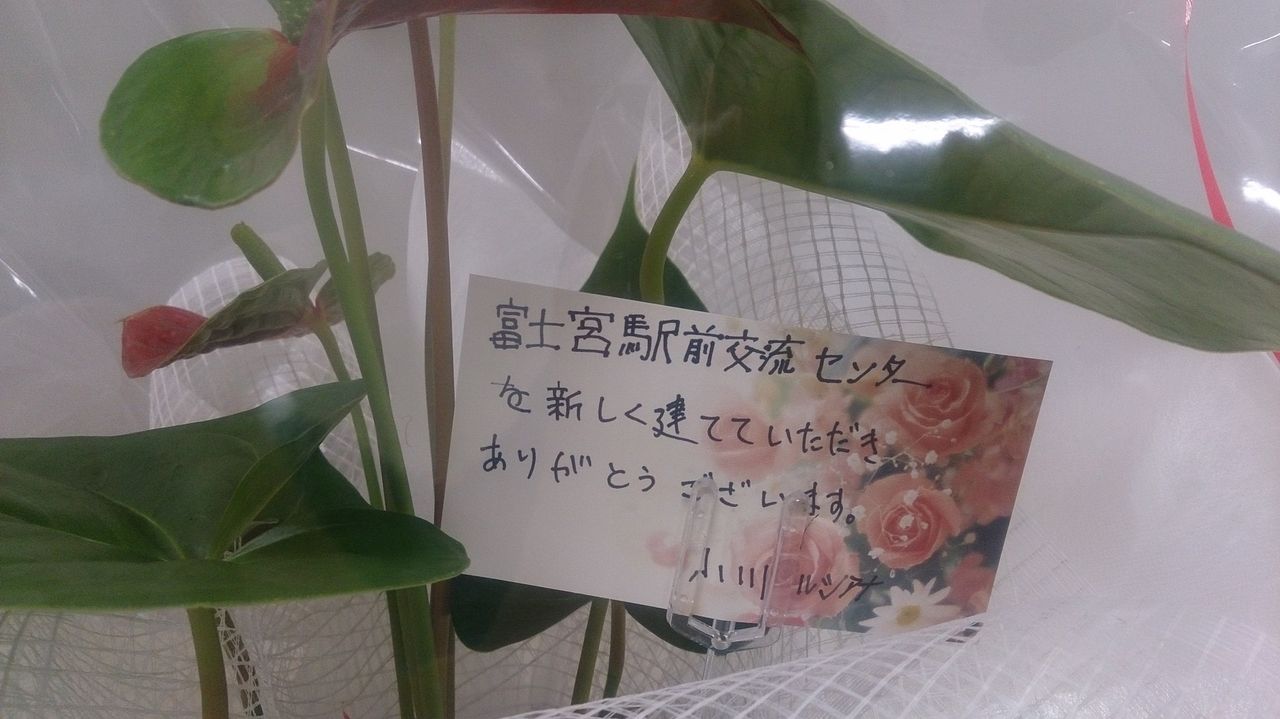 富士宮駅前交流センター
を新しく建てていただき
ありがとうございます。
小川 ルシアナ